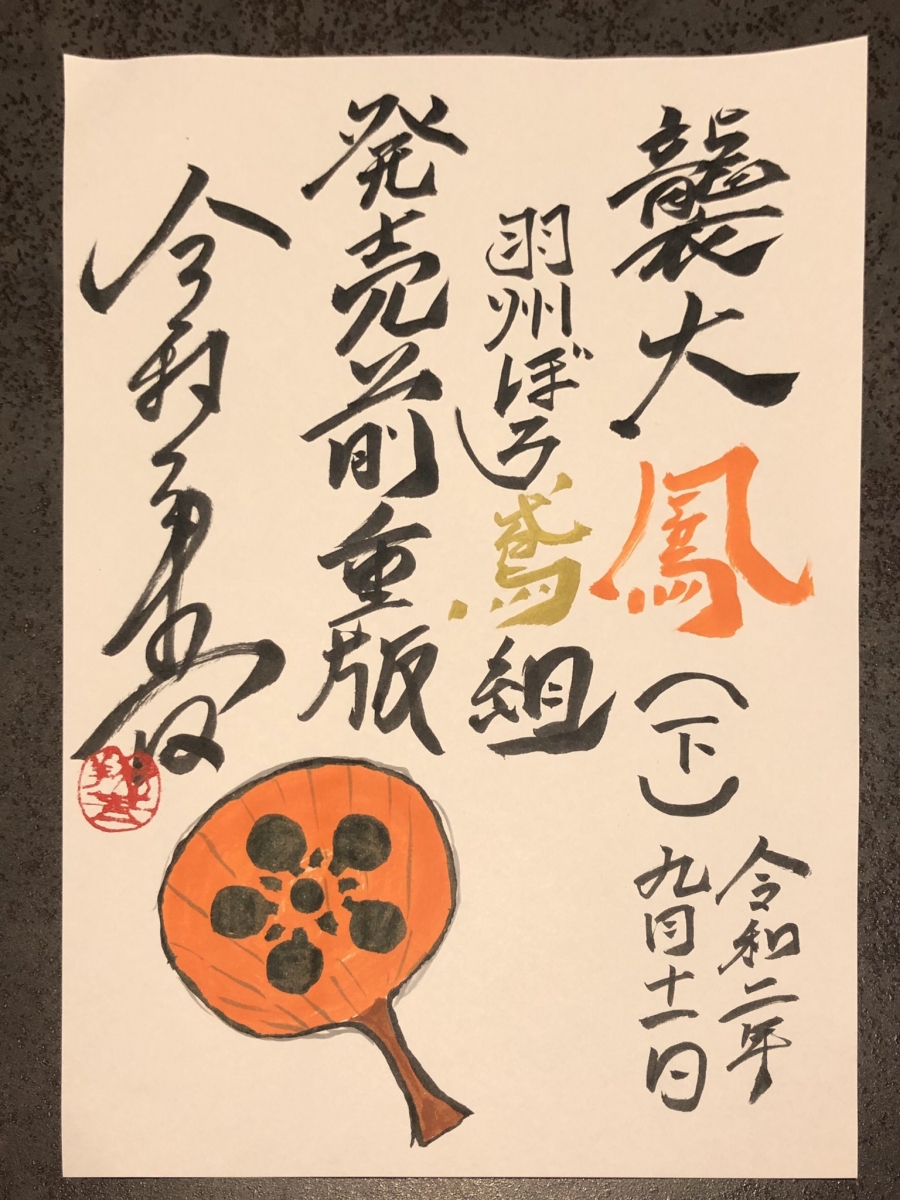 襲大鳳(下)
令和二年
九月十一日
羽州ぼろ鳶組
発売前重版
今村翔吾